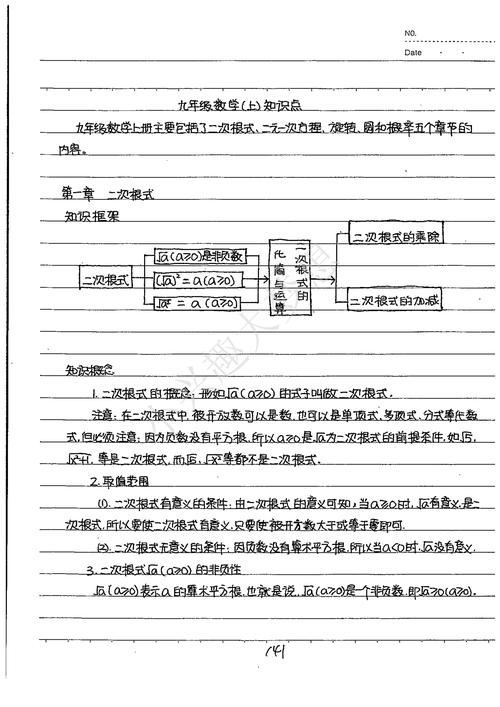 NO.
Date
九年级数学(上)知识点
九年级数学上册主要包括了二次根式、二元一次方程、旋转、圆和概率五个章节的
内容。
第一章 二次根式
知识框架
二次根式
√a(a≥0)是非负数
(√a)²=a(a≥0)
√a²=a(a≥0)
二次根式的
化简与运算
二次根式的乘除
二次根式的加减
知识概念
1.二次根式的概念:形如√a(a≥0)的式子叫做二次根式.
注意:在二次根式中,被开放数可以是数,也可以是单项式、多项式、分式等代数
式,但必须注意:因为负数没有平方根,所以a≥0是√a为二次根式的前提条件,如√5,
√x²+1,等是二次根式,而√-5,√-x²等都不是二次根式.
2.取值范围
(1).二次根式有意义的条件:由二次根式的意义可知,当a≥0时,√a有意义,是二
次根式,所以要使二次根式有意义,只要使被开方数大于或等于零即可.
(2).二次根式无意义的条件:因负数没有算术平方根,所以当a<0时,√a没有意义.
3.二次根式√a(a≥0)的非负性
√a(a≥0)表示a的算术平方根,也就是说,√a(a≥0)是一个非负数,即√a≥0(a≥0).